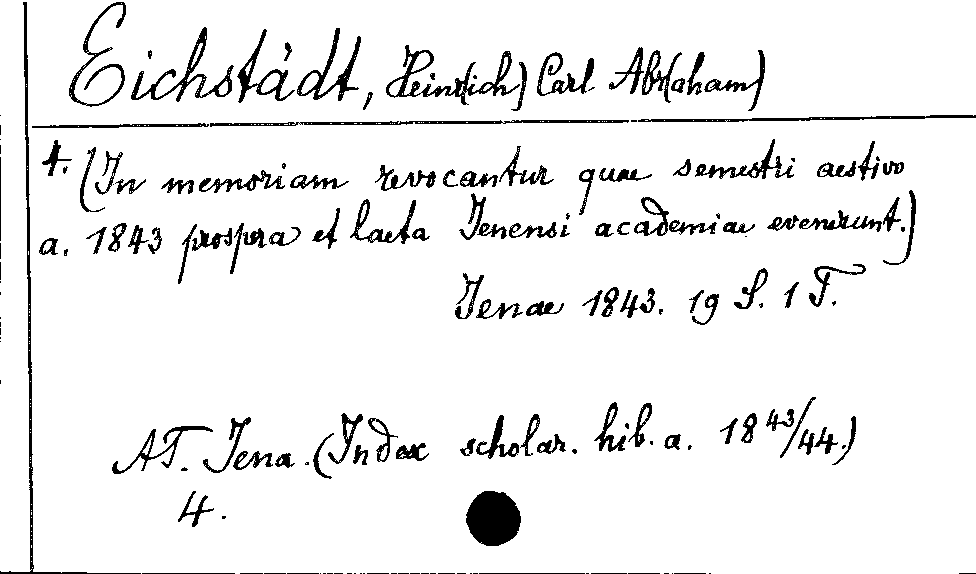 Eichstädt, Heinr(ich) Carl Abr(aham)
4. (In memoriam revocantur quae semestri aestivo
a. 1843 prospera et laeta Jenensi academiae evenerunt.)
Jenae 1843. 19 S. 1 T.
AT. Jena. (Index scholar. hib. a. 18 43/44.)
4.